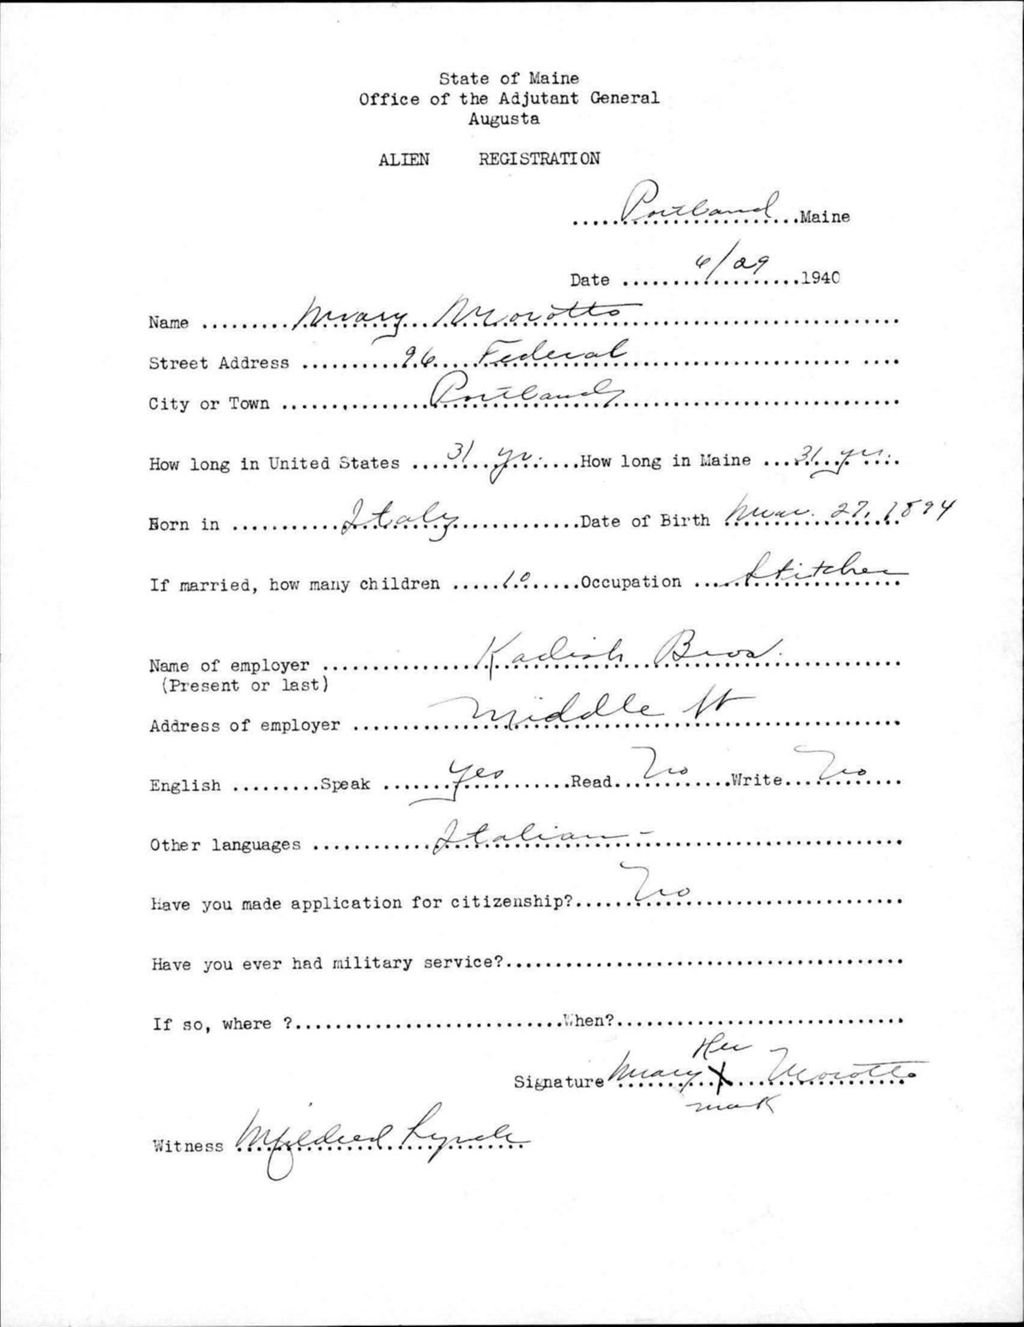 State of Maine
Office of the Adjutant General
Augusta
ALIEN REGISTRATION
.....Portland.....Maine
Date ..........6/29..........1940
Name ..........Mary Morotto..........
Street Address ..........96 Federal..........
City or Town ..........Portland..........
How long in United States ....31 yr.....How long in Maine ...31 yr...
Born in ..........Italy..........Date of Birth Mar. 27, 1894
If married, how many children .....10......Occupation .....Stitcher
Name of employer ..........Kadish Bros...........
(Present or last)
Address of employer ..........Middle St..........
English .........Speak .......Yes..........Read...No.......Write...No.....
Other languages ..........Italian -..........
Have you made application for citizenship?......No..........
Have you ever had military service?..........
If so, where ?..........When?..........
Her
Signature Mary X Morotto
mark
Witness Mildred Lynch